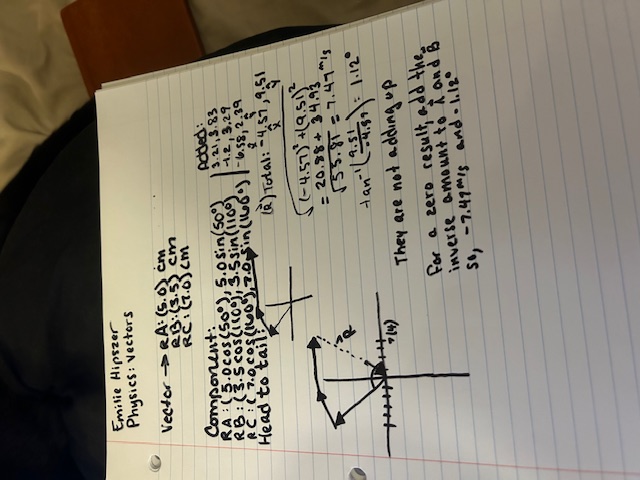 Emilie Hipszer
Physics: Vectors
Vector → RA: (5.0) cm
RB: (3.5) cm
RC: (7.0) cm
Component:
RA: (5.0 cos(50°), 5.0 sin(50°)
RB: (3.5 cos(110°), 3.5 sin(110°)
RC: (7.0 cos(160°), 7.0 sin(160°)
Added:
3.21, 3.83
-1.2, 3.29
-6.58, 2.39
x y
(R) Total: -4.57, 9.51
x y
Head to tail:
√(-4.57)²+(9.51)²
= 20.88 + 34.93
√55.81 = 7.47 m/s
tan⁻¹(9.51/-4.89) = 1.12°
R
They are not adding up
For a zero result, add the
inverse amount to A and B
so, -7.47 m/s and -1.12°